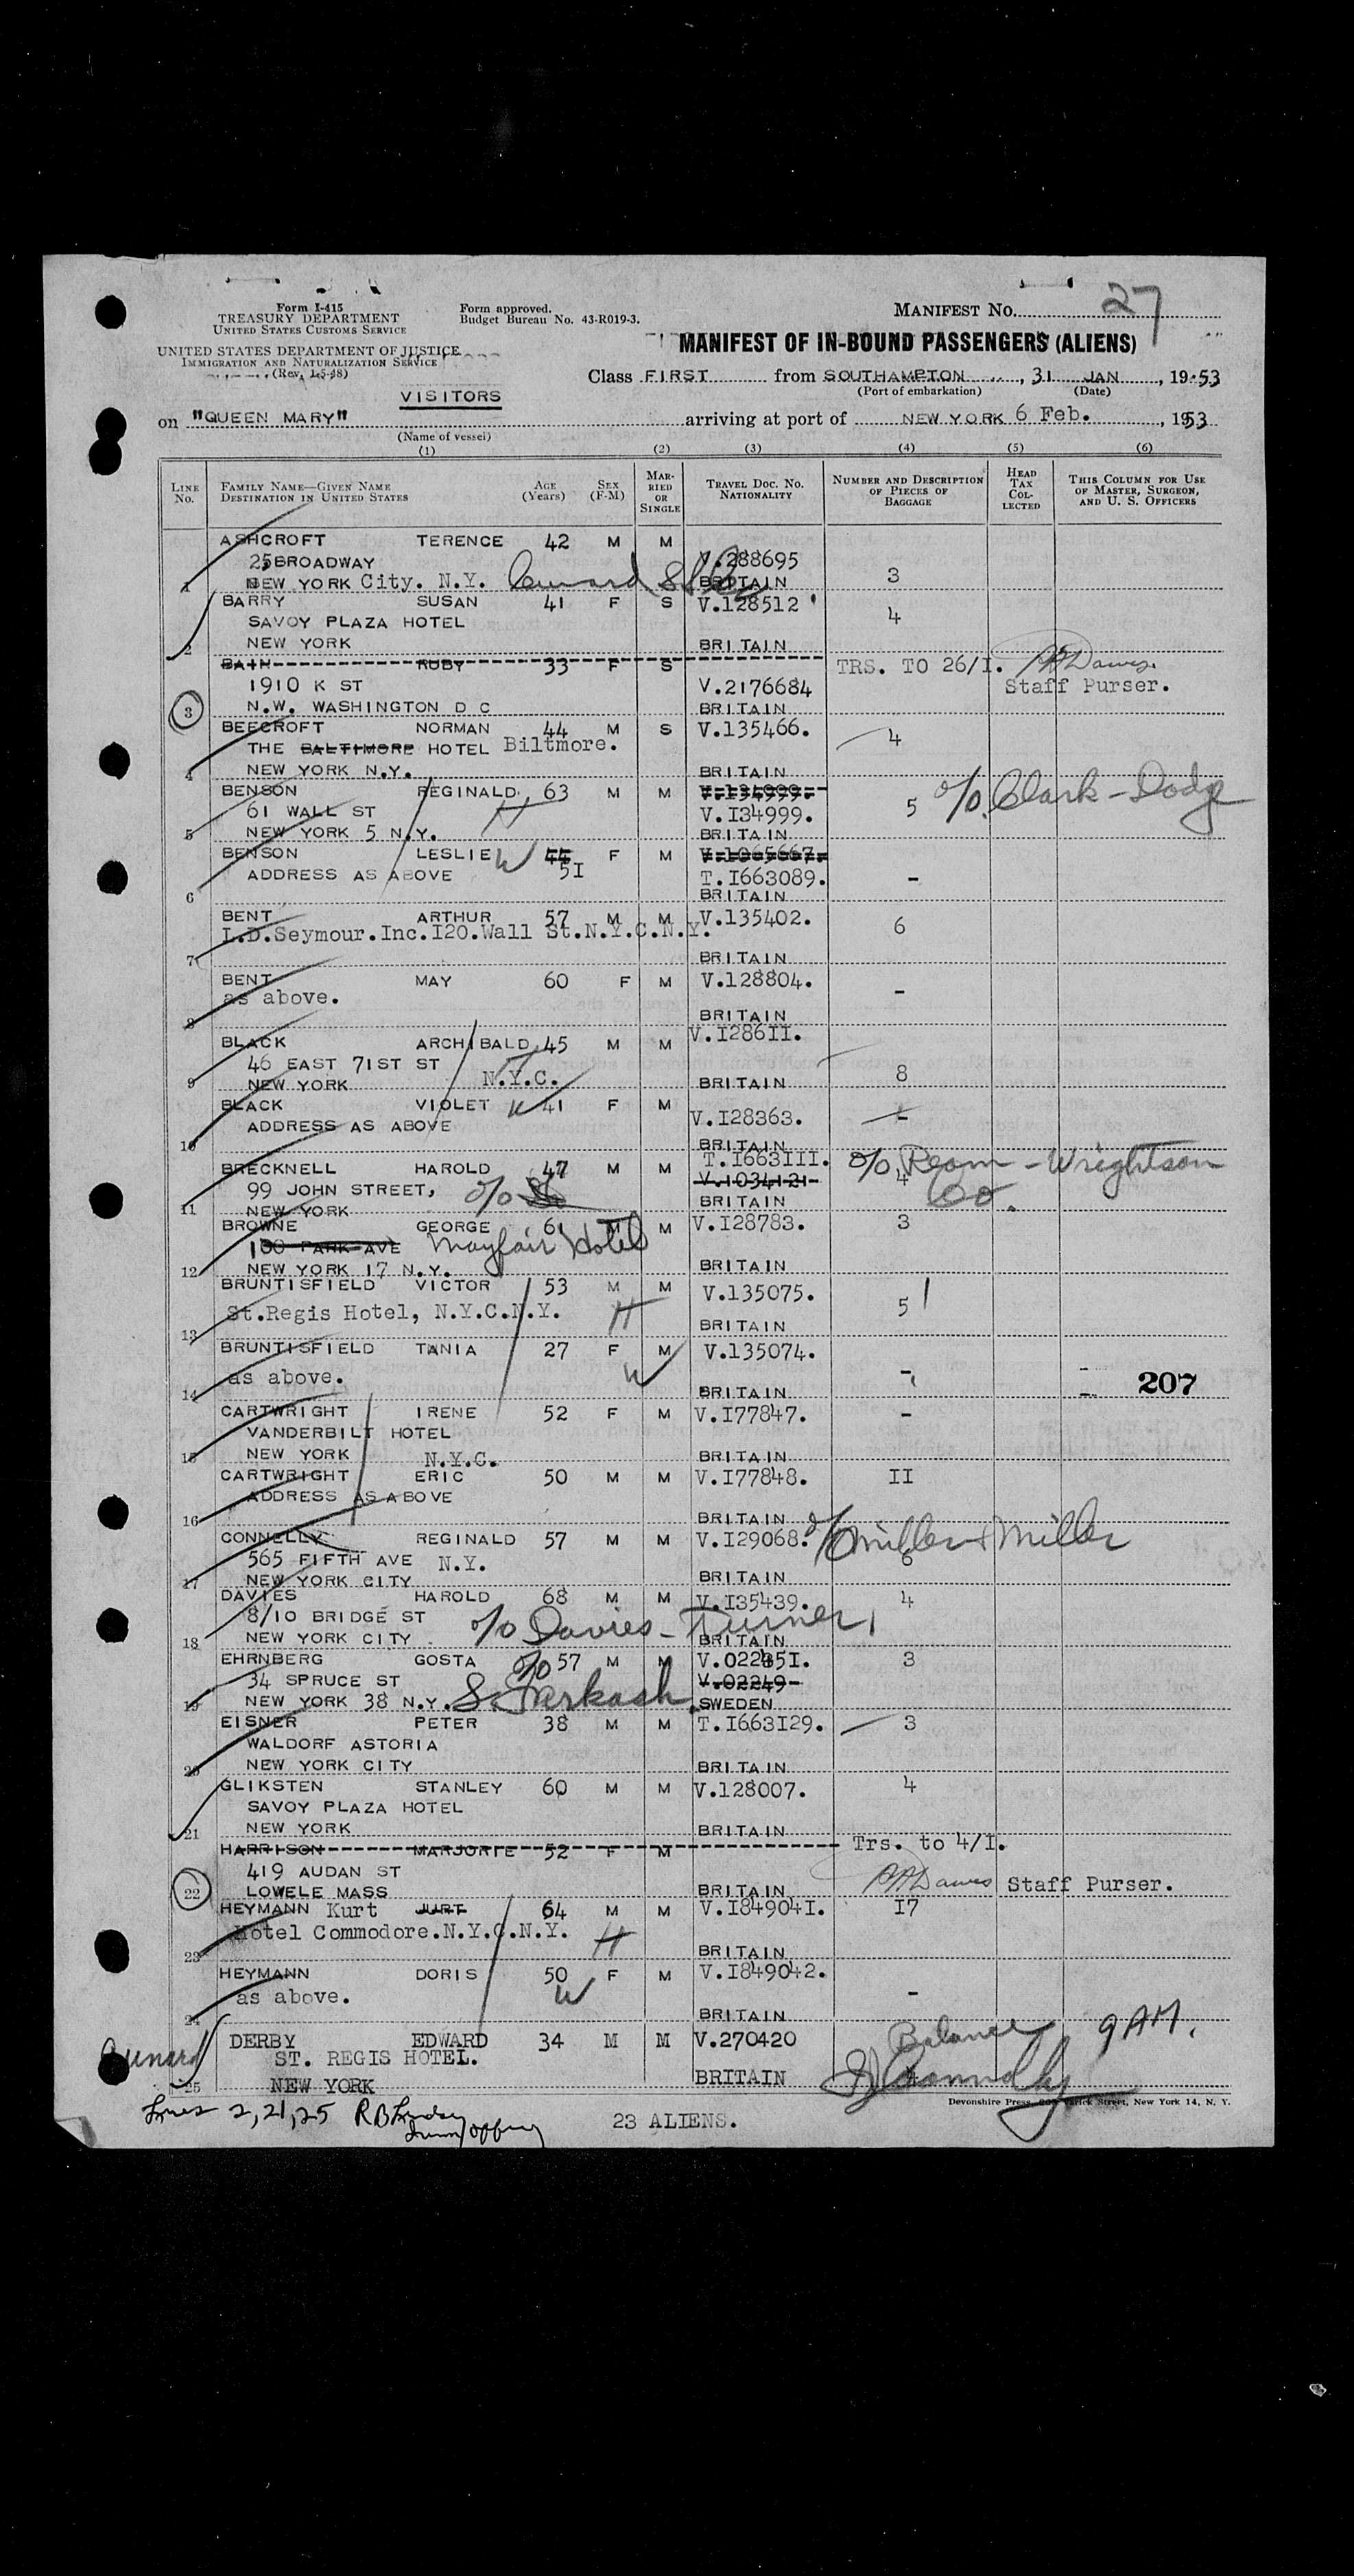 Form I-415
TREASURY DEPARTMENT
UNITED STATES CUSTOMS SERVICE
UNITED STATES DEPARTMENT OF JUSTICE
IMMIGRATION AND NATURALIZATION SERVICE
(Rev. 1-5-48)
Form approved.
Budget Bureau No. 43-R019-3.
MANIFEST NO. 27
MANIFEST OF IN-BOUND PASSENGERS (ALIENS)
Class FIRST from SOUTHAMPTON, 31 JAN, 1953
(Port of embarkation) (Date)
VISITORS
on "QUEEN MARY" arriving at port of NEW YORK 6 Feb., 1953
(Name of vessel)
(1) (2) (3) (4) (5) (6)
LINE NO. FAMILY NAME—GIVEN NAME DESTINATION IN UNITED STATES AGE (Years) SEX (F-M) MARRIED OR SINGLE TRAVEL DOC. NO. NATIONALITY NUMBER AND DESCRIPTION OF PIECES OF BAGGAGE HEAD TAX COLLECTED THIS COLUMN FOR USE OF MASTER, SURGEON, AND U. S. OFFICERS
ASHCROFT TERENCE 42 M M
25 BROADWAY V.288695
1 NEW YORK City. N.Y. Cunard BRITAIN 3
BARRY SUSAN 41 F S V.128512
SAVOY PLAZA HOTEL 4
2 NEW YORK BRITAIN
BATH RUBY 33 F S TRS. TO 26/I.
1910 K ST V.2176684 Staff Purser.
3 N.W. WASHINGTON D C BRITAIN
BEECROFT NORMAN 44 M S V.135466.
THE BALTIMORE HOTEL Biltmore. 4
4 NEW YORK N.Y. BRITAIN
BENSON REGINALD 63 M M V.134999.
61 WALL ST H V.I34999. 5 c/o Clark-Dodge
5 NEW YORK 5 N.Y. BRITAIN
BENSON LESLIE W 44 F M V.1065667.
ADDRESS AS ABOVE 5I T.I663089. -
6 BRITAIN
BENT ARTHUR 57 M M V.135402.
L.D.Seymour.Inc.I20.Wall St.N.Y.C.N.Y. 6
7 BRITAIN
BENT MAY 60 F M V.128804.
as above. -
8 BRITAIN
BLACK ARCHIBALD 45 M M V.I286II.
46 EAST 71ST ST H
9 NEW YORK N.Y.C. BRITAIN 8
BLACK VIOLET W 41 F M
ADDRESS AS ABOVE V.I28363. -
10 BRITAIN
BRECKNELL HAROLD 47 M M T.I663III. c/o Ream-Wrightson Co.
99 JOHN STREET, c/o V.1034121 4
11 NEW YORK BRITAIN
BROWNE GEORGE 61 M M V.I28783. 3
100 PARK AVE Mayfair Hotel
12 NEW YORK 17 N.Y. BRITAIN
BRUNTISFIELD VICTOR 53 M M V.135075.
St.Regis Hotel, N.Y.C.N.Y. H 5
13 BRITAIN
BRUNTISFIELD TANIA 27 F M V.135074.
as above. W -
14 BRITAIN
207
CARTWRIGHT IRENE 52 F M V.I77847. -
VANDERBILT HOTEL
15 NEW YORK N.Y.C. BRITAIN
CARTWRIGHT ERIC 50 M M V.I77848. II
ADDRESS AS ABOVE
16 BRITAIN
CONNELLY REGINALD 57 M M V.I29068. c/o Miller & Miller
565 FIFTH AVE N.Y. 6
17 NEW YORK CITY BRITAIN
DAVIES HAROLD 68 M M V.I35439. 4
8/10 BRIDGE ST c/o Davies-Turner,
18 NEW YORK CITY BRITAIN
EHRNBERG GOSTA c/o 57 M M V.02235I. 3
34 SPRUCE ST V.02249
19 NEW YORK 38 N.Y. S. Farkash. SWEDEN
EISNER PETER 38 M M T.I663I29. 3
WALDORF ASTORIA
20 NEW YORK CITY BRITAIN
GLIKSTEN STANLEY 60 M M V.128007. 4
SAVOY PLAZA HOTEL
21 NEW YORK BRITAIN
HARRISON MARJORIE 52 F M Trs. to 4/I.
419 AUDAN ST
22 LOWELE MASS BRITAIN Staff Purser.
HEYMANN Kurt JURT 64 M M V.I84904I. I7
Hotel Commodore.N.Y.C.N.Y. H
23 BRITAIN
HEYMANN DORIS 50 F M V.I849042.
as above. W -
24 BRITAIN
DERBY EDWARD 34 M M V.270420 Balance 9 AM.
Cunard ST. REGIS HOTEL.
25 NEW YORK BRITAIN
Devonshire Press, Street, New York 14, N. Y.
Lines 2, 21, 25
23 ALIENS.